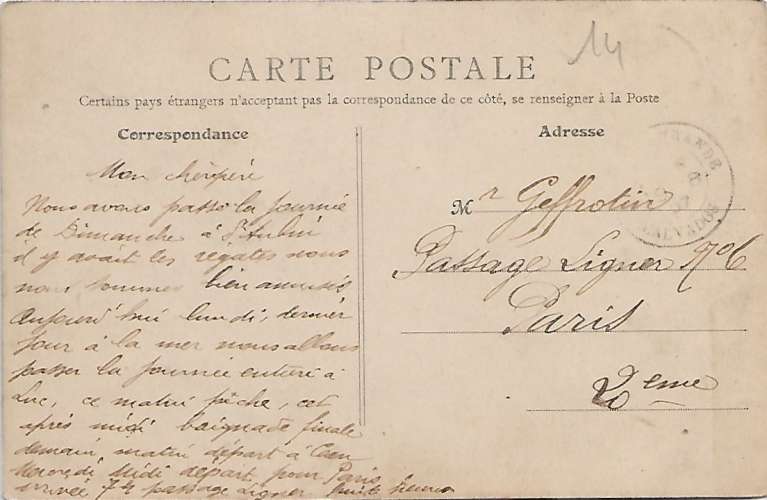 14
CARTE POSTALE
Certains pays étrangers n'acceptant pas la correspondance de ce côté, se renseigner à la Poste
Correspondance
Mon cher père
Nous avons passé la journée
de Dimanche à St Aubin
il y avait les régates nous
nous sommes bien amusés
Aujourd'hui lundi, dernier
jour à la mer nous allons
passer la journée entière à
Luc, ce matin pêche, cet
après midi baignade finale
demain, matin départ à Caen
Mercredi Midi départ pour Paris
arrivée 74 passage Ligner heures
Adresse
Mr Geffrotin
Passage Ligner No 6
Paris
20eme
CALVADOS